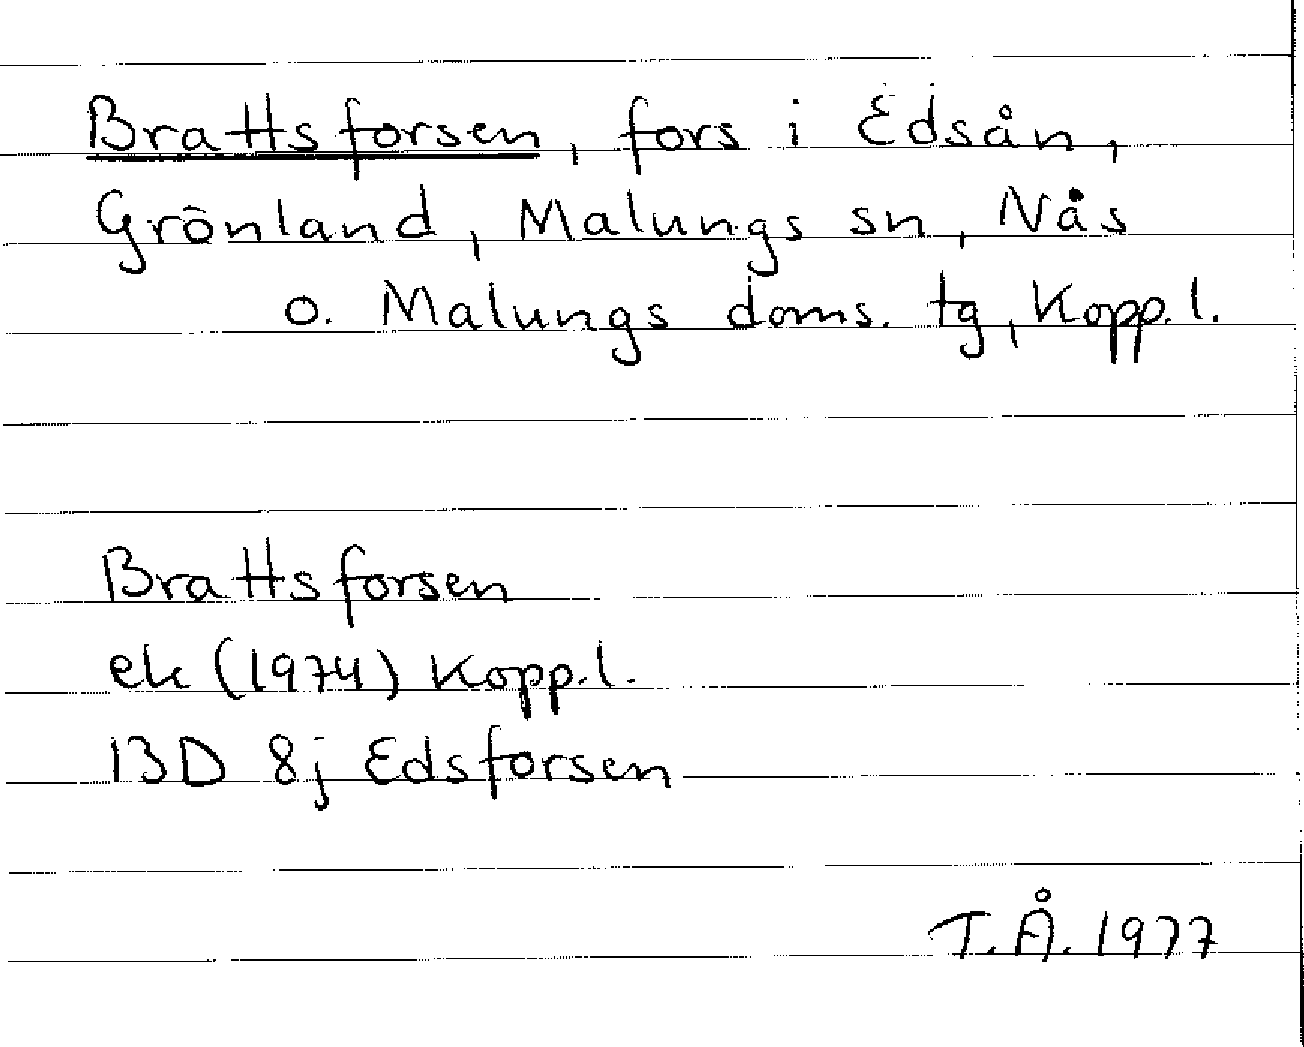 Brattsforsen, fors i Edsån,
Grönland, Malungs sn, Nås
o. Malungs doms. tg, Kopp. l.
Brattsforsen
ek (1974) Kopp. l.
13D 8j Edsforsen
T.Å. 1977